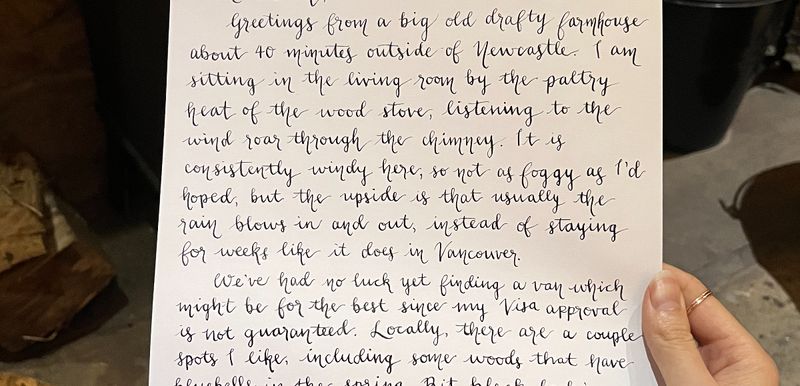 Greetings from a big old drafty farmhouse
about 40 minutes outside of Newcastle. I am
sitting in the living room by the paltry
heat of the wood stove, listening to the
wind roar through the chimney. It is
consistently windy here, so not as foggy as I'd
hoped, but the upside is that usually the
rain blows in and out, instead of staying
for weeks like it does in Vancouver.
We've had no luck yet finding a van which
might be for the best since my Visa approval
is not guaranteed. Locally, there are a couple
spots I like, including some woods that have
bluebells in the spring. But